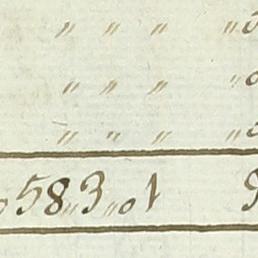 〃 〃 〃 〃
〃 〃 〃 〃
〃 〃 〃 〃
58〃3〃01